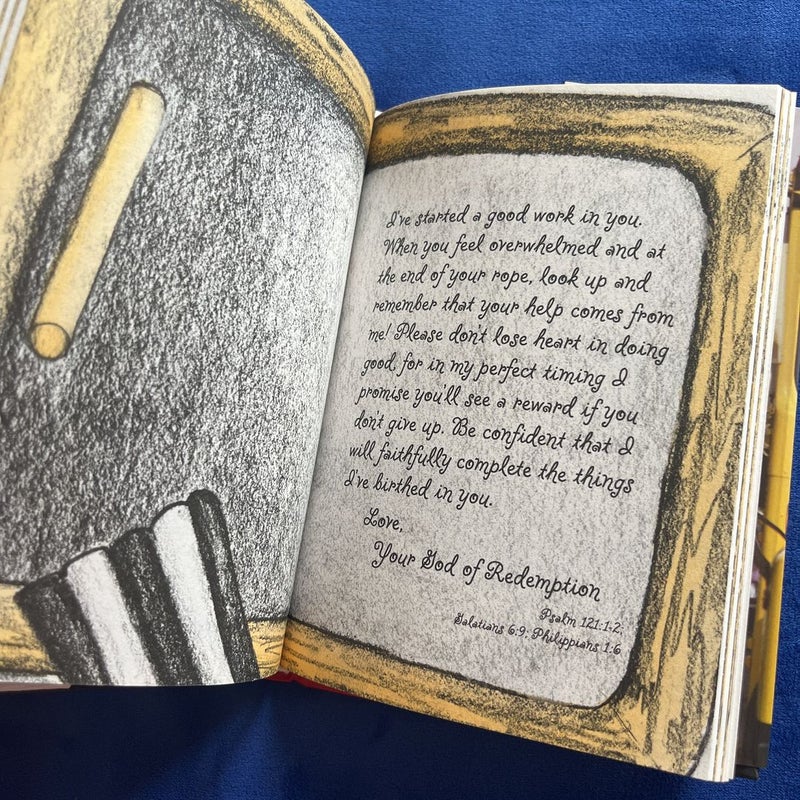 I've started a good work in you.
When you feel overwhelmed and at
the end of your rope, look up and
remember that your help comes from
me! Please don't lose heart in doing
good, for in my perfect timing I
promise you'll see a reward if you
don't give up. Be confident that I
will faithfully complete the things
I've birthed in you.
Love,
Your God of Redemption
Psalm 121:1-2;
Galatians 6:9; Philippians 1:6